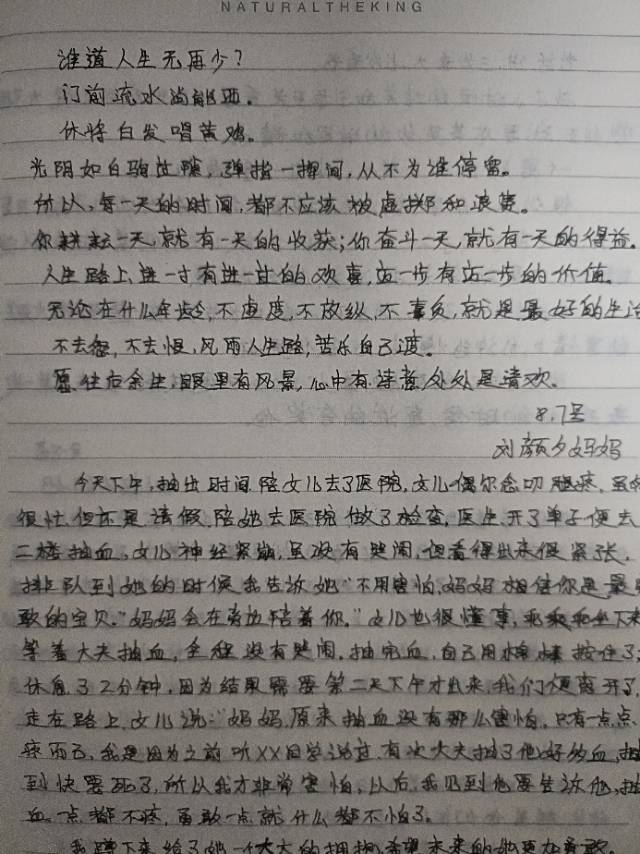 NATURALTHEKING
谁道人生无再少?
门前流水尚能西。
休将白发唱黄鸡。
光阴如白驹过隙,弹指一挥间,从不为谁停留。
所以,每一天的时间,都不应该被虚掷和浪费。
你耕耘一天,就有一天的收获;你奋斗一天,就有一天的得益。
人生路上,进一寸有进一寸的欢喜,迈一步有迈一步的价值。
无论在什么年龄,不虚度,不放纵,不辜负,就是最好的生活
不去怨,不去恨,风雨人生路,苦乐自己渡。
愿往后余生,眼里有风景,心中有诗意,处处是清欢。
8.7号
刘颜夕妈妈
今天下午,抽出时间陪女儿去了医院,女儿偶尔念叨腿疼,虽然
很忙但还是请假,陪她去医院做了检查,医生开了单子便去
二楼抽血,女儿神经紧绷,虽没有哭闹,但看得出来很紧张,
排队到她的时候我告诉她"不用害怕,妈妈相信你是最
敢的宝贝。"妈妈会在旁边陪着你。"女儿也很懂事,乖乖坐下来
等着大夫抽血,全程没有哭闹,抽完血,自己用棉棒按住了,
休息了2分钟,因为结果需要第二天下午才出来,我们便离开了,
走在路上,女儿说:"妈妈,原来抽血没有那么害怕,只有一点点
疼而已,我是因为之前听XX同学说过,有次大夫抽了他好多血,抽
到快要死了,所以我才非常害怕,以后,我见到他要告诉他,抽
血一点都不疼,勇敢一点就什么都不怕了。
我蹲下来给了她一个大大的拥抱,希望未来的她更加勇敢。